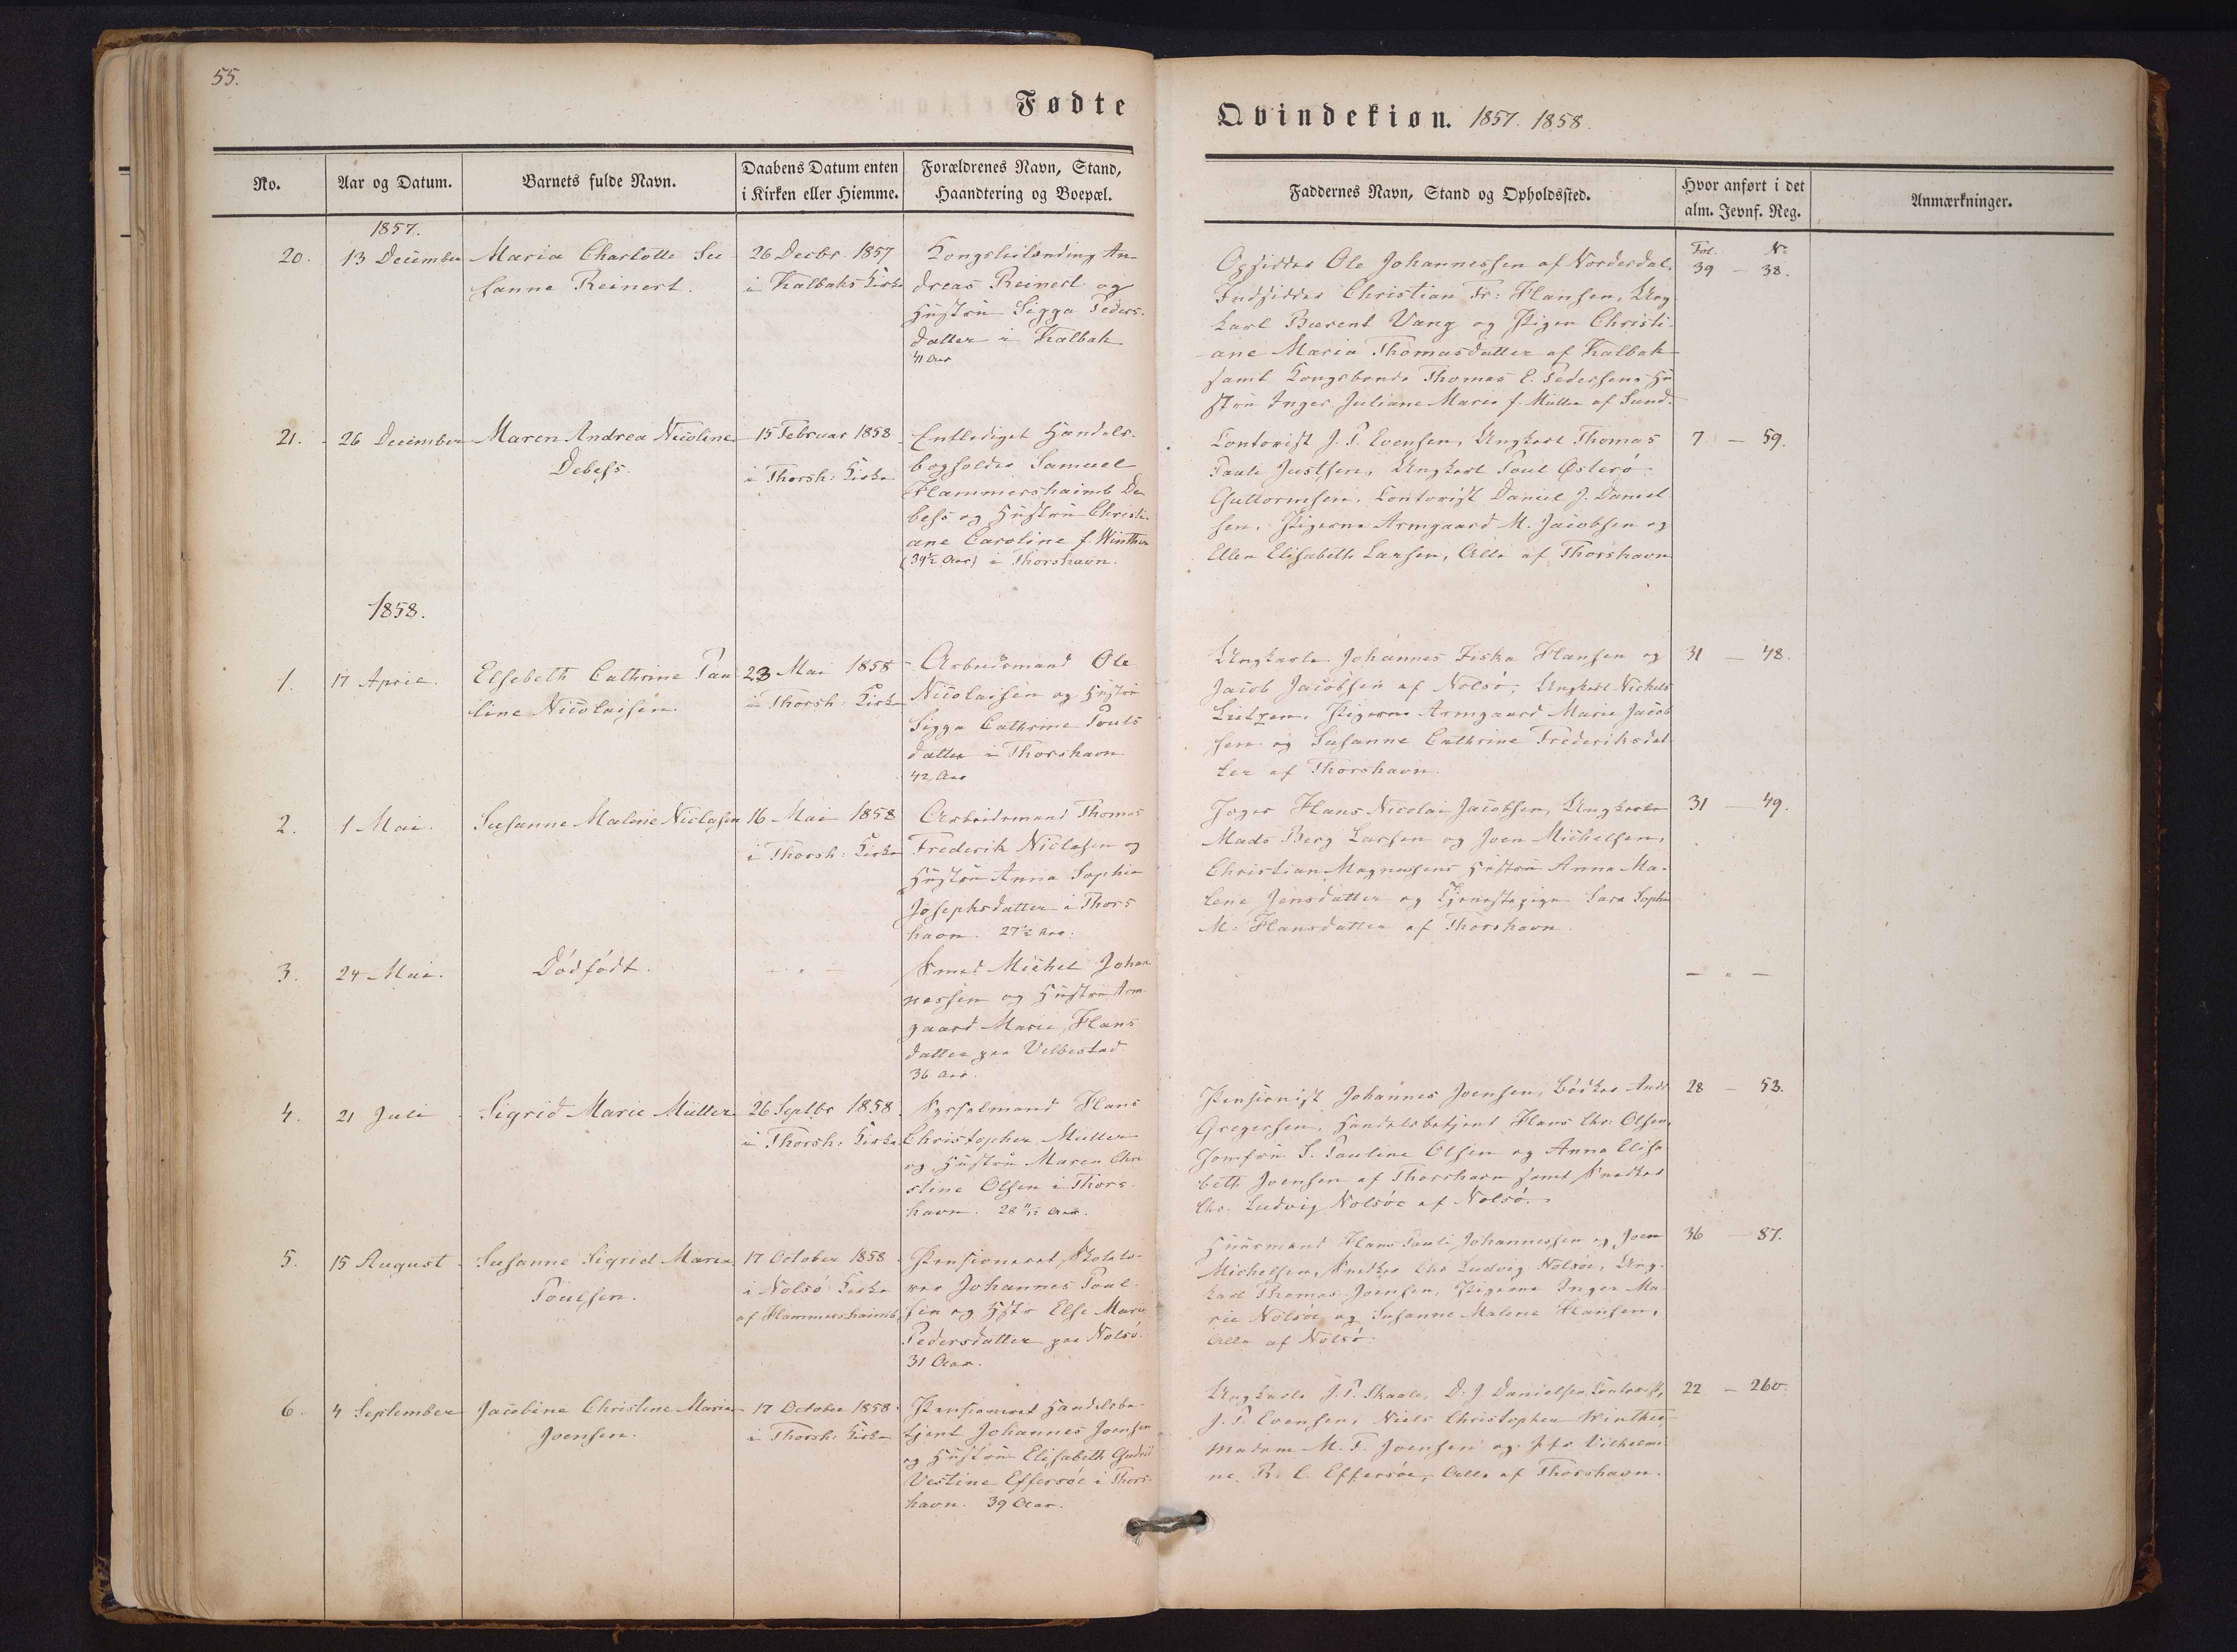 55.
Fødte
Qvindekiøn. 1857. 1858.
No.
Aar og Datum.
Barnets fulde Navn.
Daabens Datum enten
i Kirken eller Hiemme.
Forældrenes Navn, Stand,
Haandtering og Boepæl.
Faddernes Navn, Stand og Opholdssted.
Hvor anført i det
alm. Jevnf. Reg.
Anmærkninger.
1857.
20.
13 December
Maria Charlotte Su-
sanne Reinert.
26 Decbr. 1857
i Kalbaks Kirke
An-
dreas Reinert og
Hustru Sigga Peders-
datter i Kalbak
41 Aar
Opsidder Ole Johannessen af Norderdal,
Indsidder Christian Fr: Hansen, Ung-
karl Barent Vang og Pigen Christi-
ane Maria Thomasdatter af Kalbak
samt Kongsbonde Thomas E. Pedersens Hu
stru Inger Juliane Marie f. Müller af Sund.
Fol. No
39 - 38.
21.
26 December
Maren Andrea Nicoline
Debess.
15 Februar 1858
i Thorsh: Kirke
Entlediget Handels-
bogholder Samuel
Hammershaimb De
bess og Hustru Christi-
ane Caroline f. Winther
(39½ Aar) i Thorshavn.
Contorist J. P. Evensen, Ungkarl Thomas
Pauli Justsen, Ungkarl Poul Østerø
Guttormsen, Contorist Daniel J. Daniel
sen, Pigerne Armgaard M. Jacobsen og
Ellen Elisabeth Larsen, Alle af Thorshavn
7 - 59.
1858.
1.
17 April.
Elsebeth Cathrine Pau
line Nicolaisen.
23 Mai 1858
i Thorsh: Kirke
Arbeidsmand Ole
Nicolaisen og Hustru
Sigga Cathrine Pouls
datter i Thorshavn
42 Aar
Ungkarle Johannes Fiska Hansen og
Jacob Jacobsen af Nolsø, Ungkarl Nichels
Lützen, Pigerne Armgaard Marie Jacob
sen og Susanne Cathrine Frederiksdat
ter af Thorshavn.
31 - 48.
2.
1 Mai.
Susanne Malene Niclasen
16 Mai 1858
i Thorsh: Kirke
Arbeidsmand Thomas
Frederik Niclasen og
Hustru Anna Sophie
Josephsdatter i Thors
havn. 27½ Aar.
Jæger Hans Nicolai Jacobsen, Ungkarle
Mads Berg Larsen og Joen Michelsen,
Christian Magnussens Hustru Anna Ma-
lene Jensdatter og Tjenestepige Sara Sophie
M. Hansdatter af Thorshavn.
31 - 49.
3.
24 Mai.
Dødfødt.
- " -
Smed Michel Johan
nessen og Hustru Arm
gaard Marie Hans
datter paa Velbestad
36 Aar.
- " -
4.
21 Juli
Sigrid Marie Müller
26 Septbr 1858
i Thorsh: Kirke
Sysselmand Hans
Christopher Müller
og Hustru Maren Chri
stine Olsen i Thors-
havn. 28 11/12 Aar.
Pensionist Johannes Joensen, Bødker Andr
Gregersen, Handelsbetjent Hans Chr. Olsen,
Jomfru S. Pauline Olsen og Anna Elisa
beth Joensen af Thorshavn samt Snedker
Chr. Ludvig Nolsøe af Nolsø.
28 - 53.
5.
15 August
Susanne Sigrid Maria
Poulsen.
17 October 1858
i Nolsø Kirke
af Hammershaimb
Pensioneret Skolelæ-
rer Johannes Poul-
sen og Hstr Else Marie
Pedersdatter paa Nolsø.
31 Aar.
Huusmand Hans Pauli Johannessen og Joen
Michelsen, Snedker Chr Ludvig Nolsøe, Ung-
karl Thomas Joensen, Pigerne Inger Ma-
rie Nolsøe og Susanne Malene Hansen,
Alle af Nolsø.
36 - 87.
6.
4 September
Jacobine Christine Maria
Joensen.
17 October 1858.
i Thorsh: Kirke
Pensioneret Handelsbe-
tjent Johannes Joensen
og Hustru Elisabeth Gudrid
Vestine Effersøe i Thors-
havn. 39 Aar.
Ungkarle J. P. Skaale, D. J. Danielsen, Contorist,
J. P. Evensen, Niels Christopher Winther,
Madam M. F. Joensen og Vilhelmi
ne R. C. Effersøe, Alle af Thorshavn.
22 - 260.